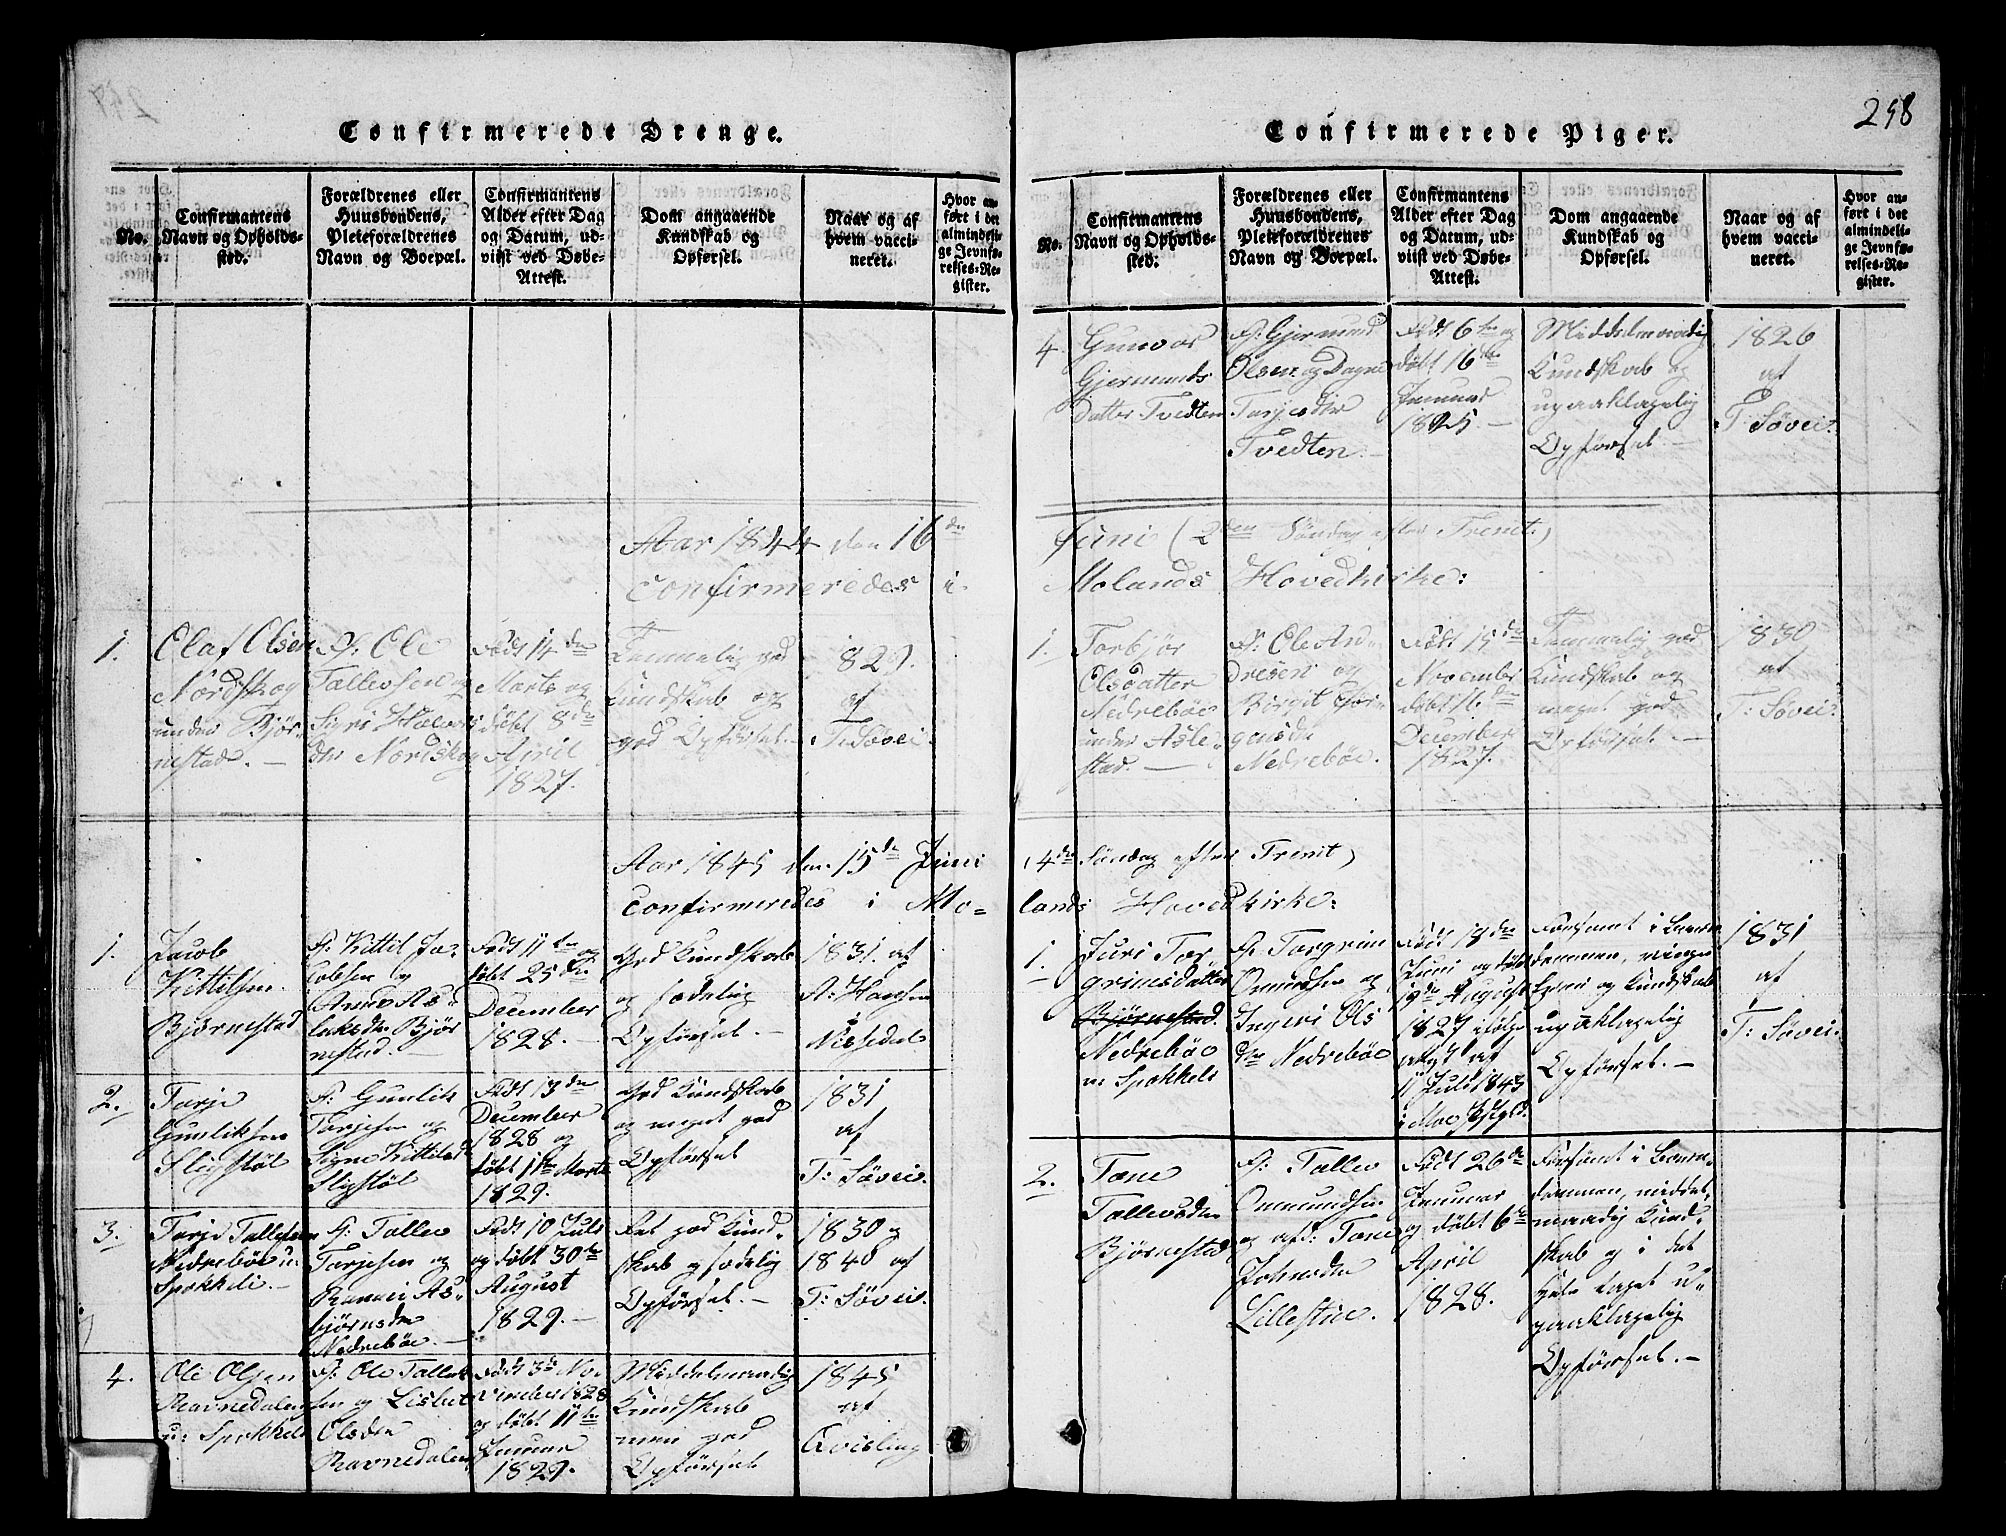 298
Confirmerede Drenge.
No.
Confirmantens
Navn og Opholds-
sted.
Forældrenes eller
Huusbondens,
Pleieforældrenes
Navn og Boepæl.
Confirmantens
Alder efter Dag
og Datum, ud-
viist ved Døbe-
Attest.
Dom angaaende
Kundskab og
Opførsel.
Naar og af
hvem vacci-
neret.
Hvor an-
ført i det
almindeli-
ge Jevnfø-
relses-Re-
gister.
Aar 1844 den 16de
Confirmeredes i
1.
Olaf Olsen
Nordskog
under Bjør-
nestad. —
F: Ole
Tallevsen og
Sigri Halvors
dtr Nordskog
Født 14de
Marts og
døbt 8de
April
1827.
Temmelig god
Kundskab og
god Opførsel. —
1829.
af
T: Søvei.
Aar 1845 den 15de Juni
Confirmeredes i Mo-
1.
Jacob
Kittilsen
Bjørnestad
F: Kittil Ja-
cobsen og
Anne As-
laksdr Bjør
nestad. —
Født 11te og
døbt 25de
December
1828. —
God Kundskab
og sædelig
Opførsel. —
1831. af
A: Hansen
i
Nissedal
2.
Tarje
Gunliksen
Sligstøl
F: Gunlik
Tarjesen og
Signe Kittilsd
Sligstøl
Født 13de
December
1828 og
døbt 1ste Marts
1829.
God Kundskab
og meget god
Opførsel
1831
af
T: Søvei.
3.
Tarje Tallefsen
Nedrebøe u:
Spokkeli. —
F: Tallev
Tarjesen og
Ramei As-
bjørnsdr
Nedrebøe. —
Født 10 Juli
og døbt 30te
August
1829. —
Ret god Kund-
skab og sædelig
Opførsel. —
1830 og
1840 af
T: Søvei.
4.
Ole Olsen
Ravnedalen
u: Spokkeli
F: Ole Tallev
sen og Lisbet
Olsdr
Ravnedalen
Født 3de No-
vember 1828
og døbt 11te
Januar
1829.
Middelmaadig
Kundskab
men god
Opførsel
1845
af
Qvisling
Confirmerede Piger.
No.
Confirmantens
Navn og Opholds-
sted.
Forældrenes eller
Huusbondens,
Pleieforældrenes
Navn og Boepæl.
Confirmantens
Alder efter Dag
og Datum, ud-
viist ved Døbe-
Attest.
Dom angaaende
Kundskab og
Opførsel.
Naar og af
hvem vacci-
neret.
Hvor an-
ført i det
almindeli-
ge Jevnfø-
relses-Re-
gister.
4.
Gunvor
Gjermunds
datter Tvedten
F: Gjermund
Olsen og Dagne
Tarjesdtr
Tvedten. —
Født 6te og
døbt 16de
Januar
1825. —
Middelmaadig
Kundskab og
upaaklagelig
Opførsel. —
1826
af
T: Søvei.
Juni (2den Søndag efter Trenit.)
Molands Hovedkirke:
1.
Torbjør
Olsdatter
Nedrebøe
under Asle-
stad. —
F: Ole An-
dresen og
Birgit Gjør-
gensdr
Nedrebøe.
Født 15de
November
døbt 16de
December
1827.
Temmelig god
Kundskab og
meget god
Opførsel. —
1830
af
T: Søvei.
(4de Søndag efter Trenit)
lands Hovedkirke:
1.
Juri Tor-
grimsdatter
Bjørnestad.
Nedrebøe
u: Spokkeli
F: Torgrim
Onundsen og
Ingeri Ols
dtr Nedrebøe
Født 18de
Juni og døbt
19de August
1827 ifølge
af
11 Juli 1843
i Moe
Forsømt i Barn-
dommen, ringe
og Kundskab
upaaklagelig
Opførsel. —
1831
af
T: Søvei.
2.
Tone
Tallevsdr
Bjørnestad
F: Tallev
Onmundsen
og afd: Tone
Johnsdr
Lillestue.
Født 26de
Januar
og døbt 6te
April
1828.
Forsømt i Barn-
dommen, middel-
maadig Kund-
skab og i det
hele taget u-
paaklagelig
Opførsel. —